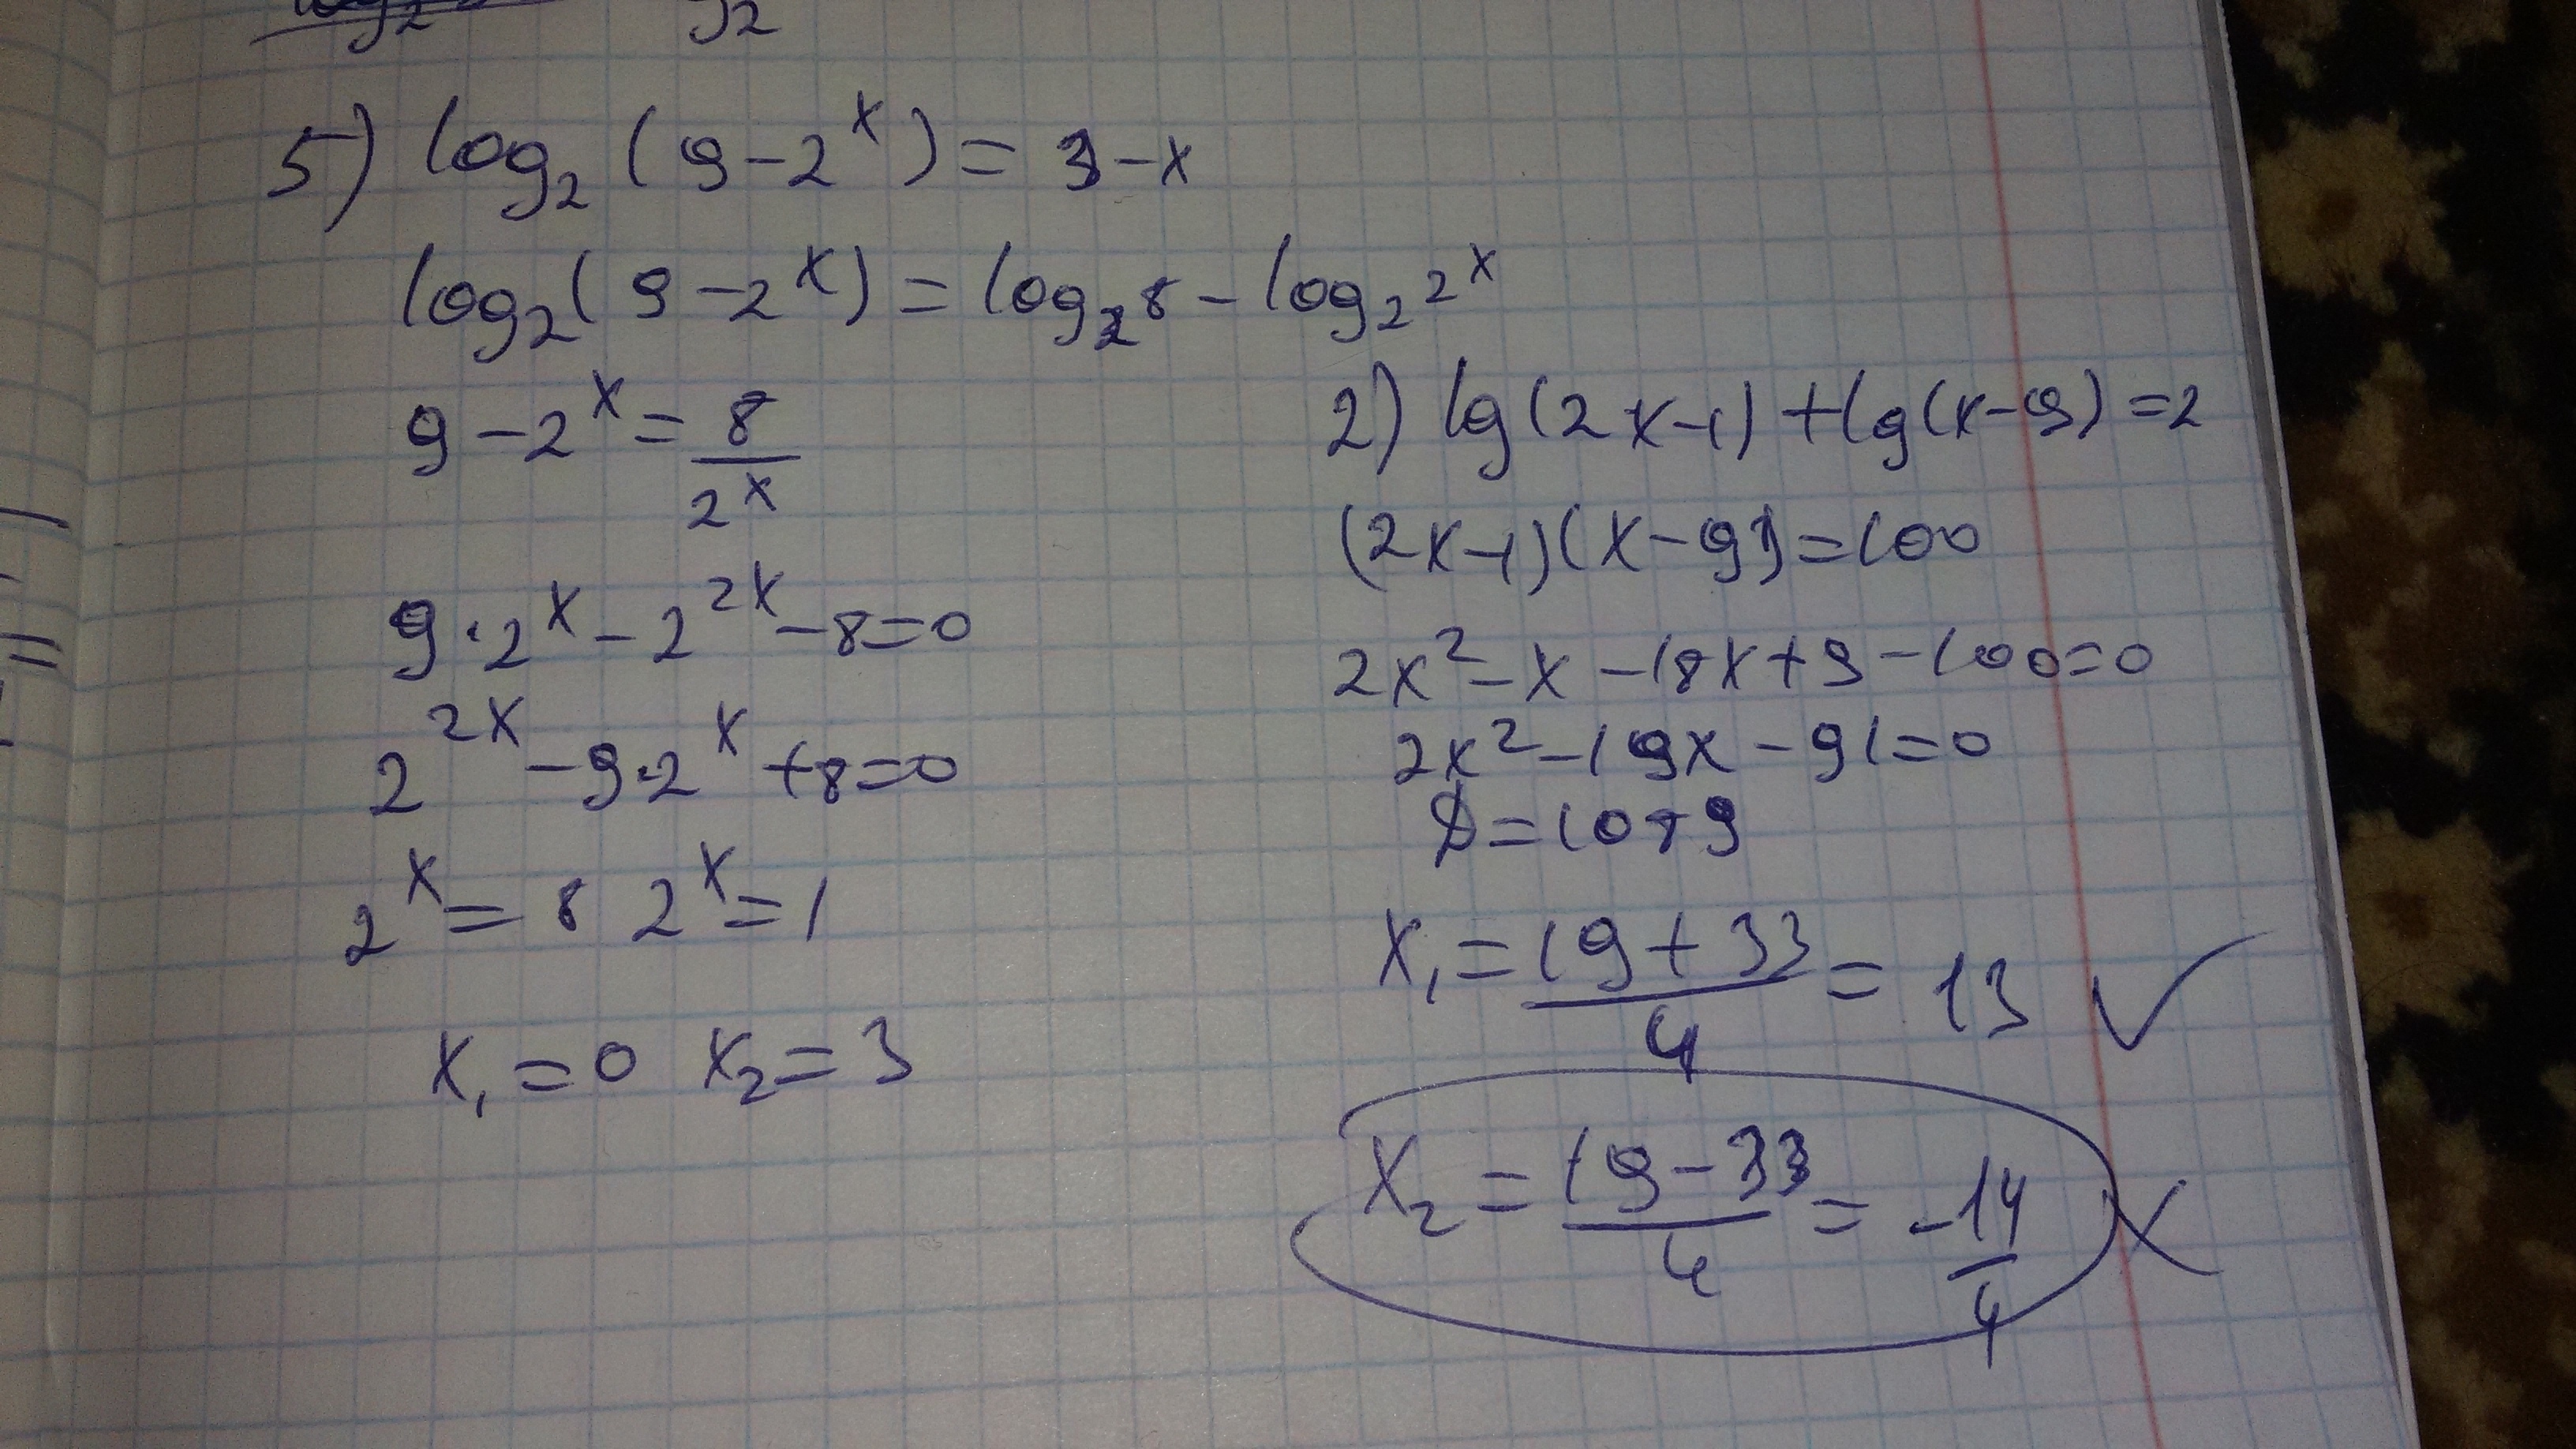 5) log₂(9-2ˣ)=3-x
log₂(9-2ˣ)=log₂8-log₂2ˣ
9-2ˣ=8/2ˣ
9·2ˣ-2²ˣ-8=0
2²ˣ-9·2ˣ+8=0
2ˣ=8 2ˣ=1
x₁=0 x₂=3
2) lg(2x-1)+lg(x-9)=2
(2x-1)(x-9)=100
2x²-x-18x+9-100=0
2x²-19x-91=0
D=1089
x₁=(19+33)/4=13 ✓
x₂=(19-33)/4=-14/4 X